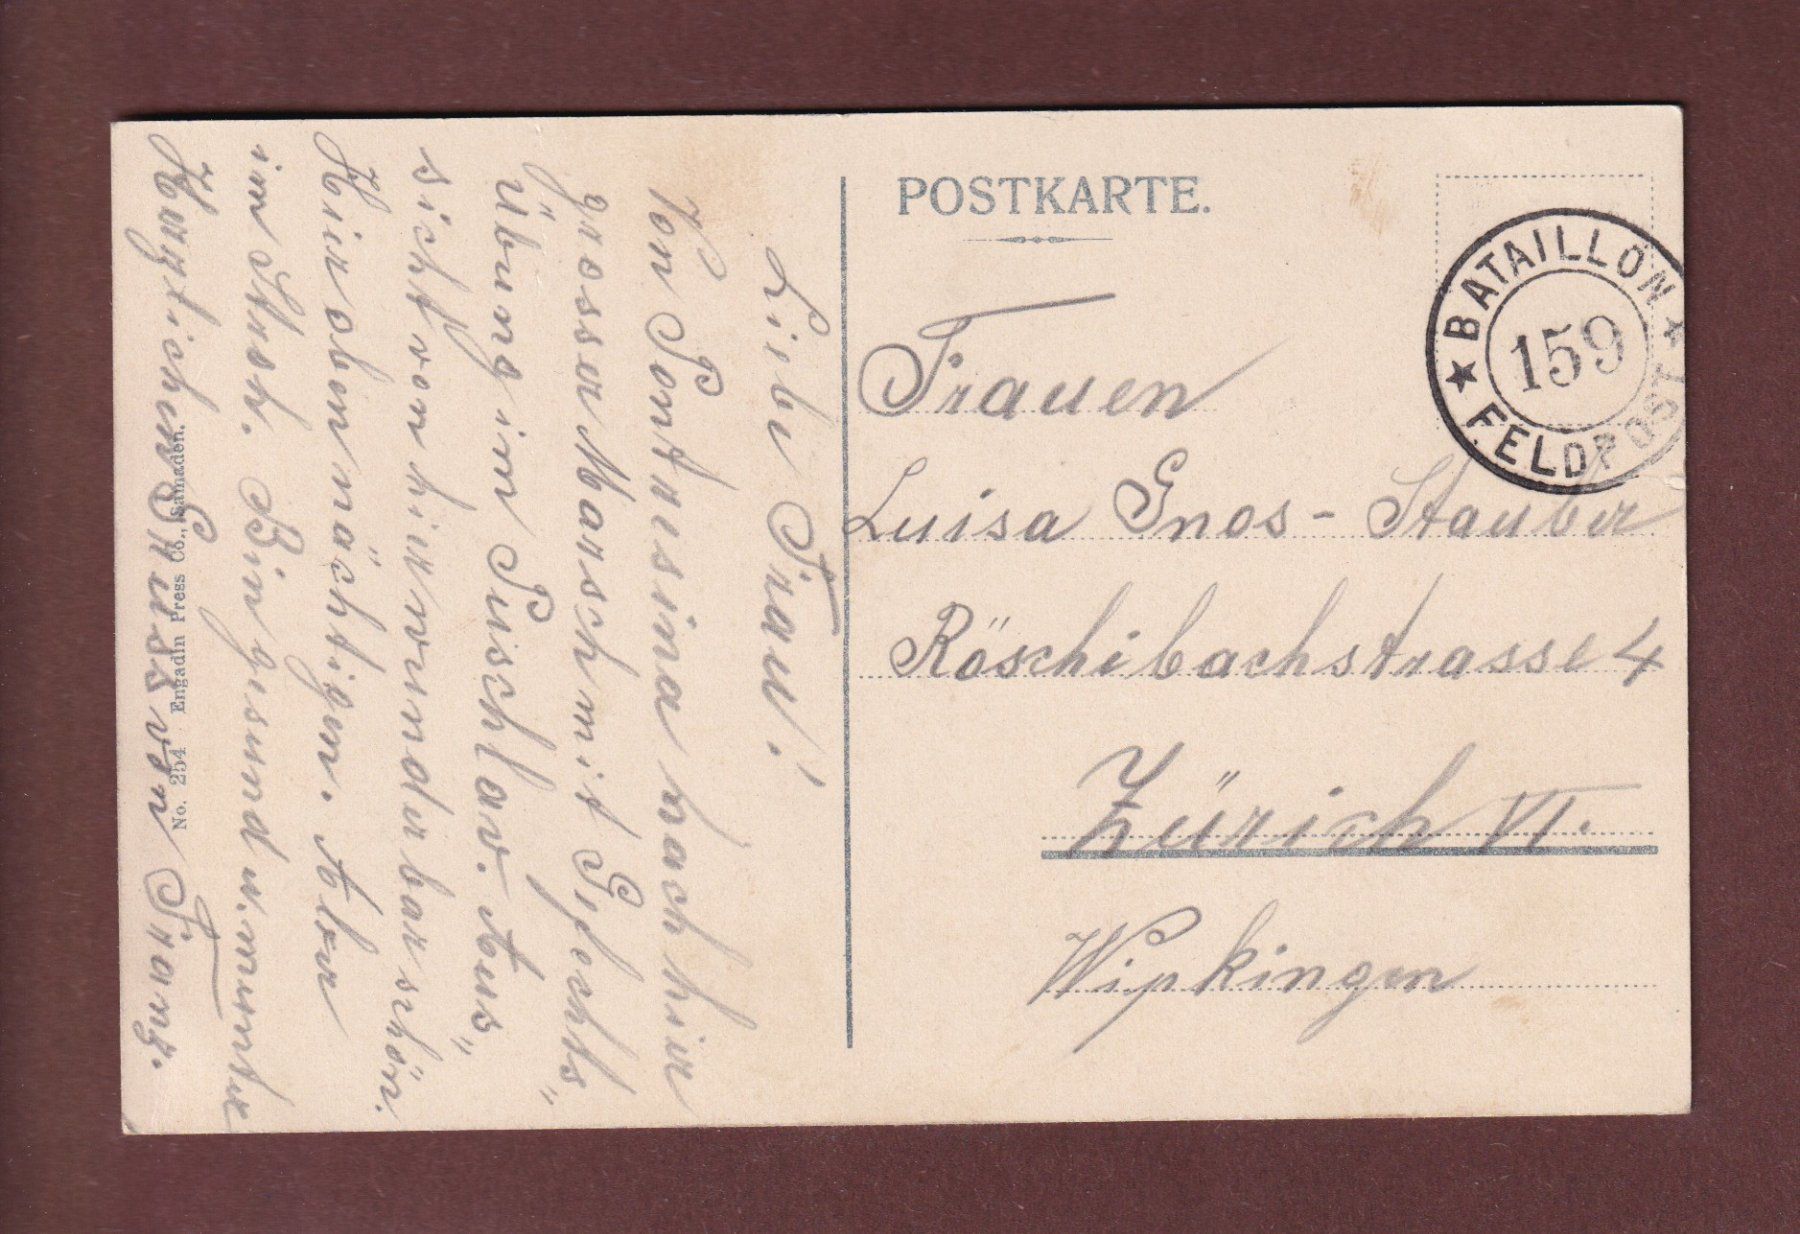 POSTKARTE.
BATAILLON
159
FELDPOST
Frauen
Luisa Gnos-Stauber
Röschibachstrasse 4
Zürich VI.
Wipkingen
Liebe Frau!
Von Pontresina nach hier
grosser Marsch mit Gefechts„
Übung im Puschlav. Aus„
sicht von hier wunderbar schön.
Hier oben mächtiger. Aber
im Arsch. Bin gesund u. munter
Herzlichen Gruss von Franz.
No. 254 Engadin Press Co., Samaden.